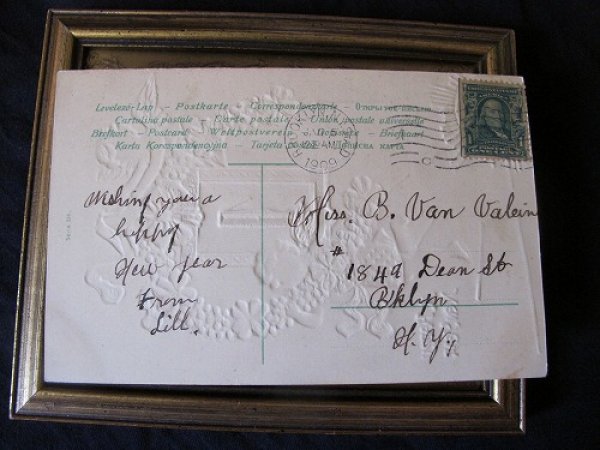 Levelező-Lap – Postkarte – Correspondenzkarte
Cartolina postale – Carte postale – Union postale universelle
Brefkort – Postcard – Weltpostverein – Dopisnice – Briefkaart
Karta Korespondencyjna – Tarjeta postal
1909
Wishing you a
happy
New year
From
Lill.
Miss. B. Van Valein
# 1849 Dean St
Bklyn
N. Y.